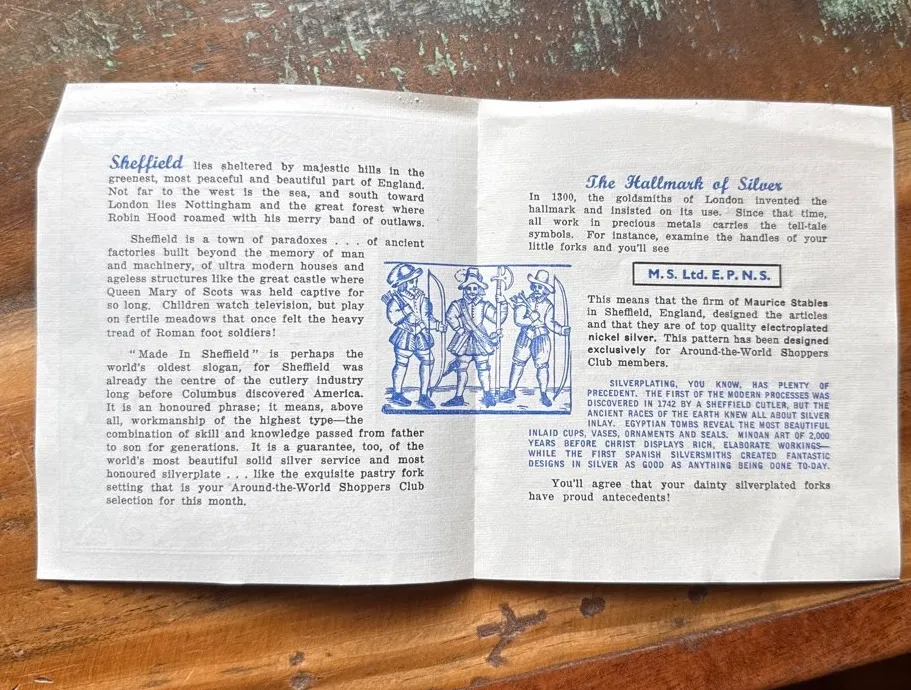 Sheffield lies sheltered by majestic hills in the
greenest, most peaceful and beautiful part of England.
Not far to the west is the sea, and south toward
London lies Nottingham and the great forest where
Robin Hood roamed with his merry band of outlaws.
Sheffield is a town of paradoxes . . . of ancient
factories built beyond the memory of man
and machinery, of ultra modern houses and
ageless structures like the great castle where
Queen Mary of Scots was held captive for
so long. Children watch television, but play
on fertile meadows that once felt the heavy
tread of Roman foot soldiers!
"Made In Sheffield" is perhaps the
world's oldest slogan, for Sheffield was
already the centre of the cutlery industry
long before Columbus discovered America.
It is an honoured phrase; it means, above
all, workmanship of the highest type—the
combination of skill and knowledge passed from father
to son for generations. It is a guarantee, too, of the
world's most beautiful solid silver service and most
honoured silverplate . . . like the exquisite pastry fork
setting that is your Around-the-World Shoppers Club
selection for this month.
The Hallmark of Silver
In 1300, the goldsmiths of London invented the
hallmark and insisted on its use. Since that time,
all work in precious metals carries the tell-tale
symbols. For instance, examine the handles of your
little forks and you'll see
M.S. Ltd. E.P.N.S.
This means that the firm of Maurice Stables
in Sheffield, England, designed the articles
and that they are of top quality electroplated
nickel silver. This pattern has been designed
exclusively for Around-the-World Shoppers
Club members.
SILVERPLATING, YOU KNOW, HAS PLENTY OF
PRECEDENT. THE FIRST OF THE MODERN PROCESSES WAS
DISCOVERED IN 1742 BY A SHEFFIELD CUTLER, BUT THE
ANCIENT RACES OF THE EARTH KNEW ALL ABOUT SILVER
INLAY. EGYPTIAN TOMBS REVEAL THE MOST BEAUTIFUL
INLAID CUPS, VASES, ORNAMENTS AND SEALS. MINOAN ART OF 2,000
YEARS BEFORE CHRIST DISPLAYS RICH, ELABORATE WORKINGS—
WHILE THE FIRST SPANISH SILVERSMITHS CREATED FANTASTIC
DESIGNS IN SILVER AS GOOD AS ANYTHING BEING DONE TO-DAY.
You'll agree that your dainty silverplated forks
have proud antecedents!